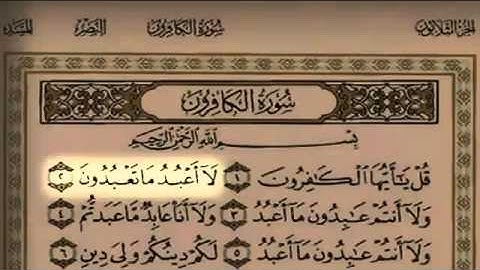 الجزء الثلاثون سُورَةُ الكَافِرُونَ النَّصْر المَسَد
سُورَةُ الكَافِرُونَ
بِسْمِ اللَّهِ الرَّحْمَٰنِ الرَّحِيمِ
قُلْ يَا أَيُّهَا الْكَافِرُونَ ١ لَا أَعْبُدُ مَا تَعْبُدُونَ ٢
وَلَا أَنتُمْ عَابِدُونَ مَا أَعْبُدُ ٣ وَلَا أَنَا عَابِدٌ مَّا عَبَدتُّمْ ٤
وَلَا أَنتُمْ عَابِدُونَ مَا أَعْبُدُ ٥ لَكُمْ دِينُكُمْ وَلِيَ دِينِ ٦